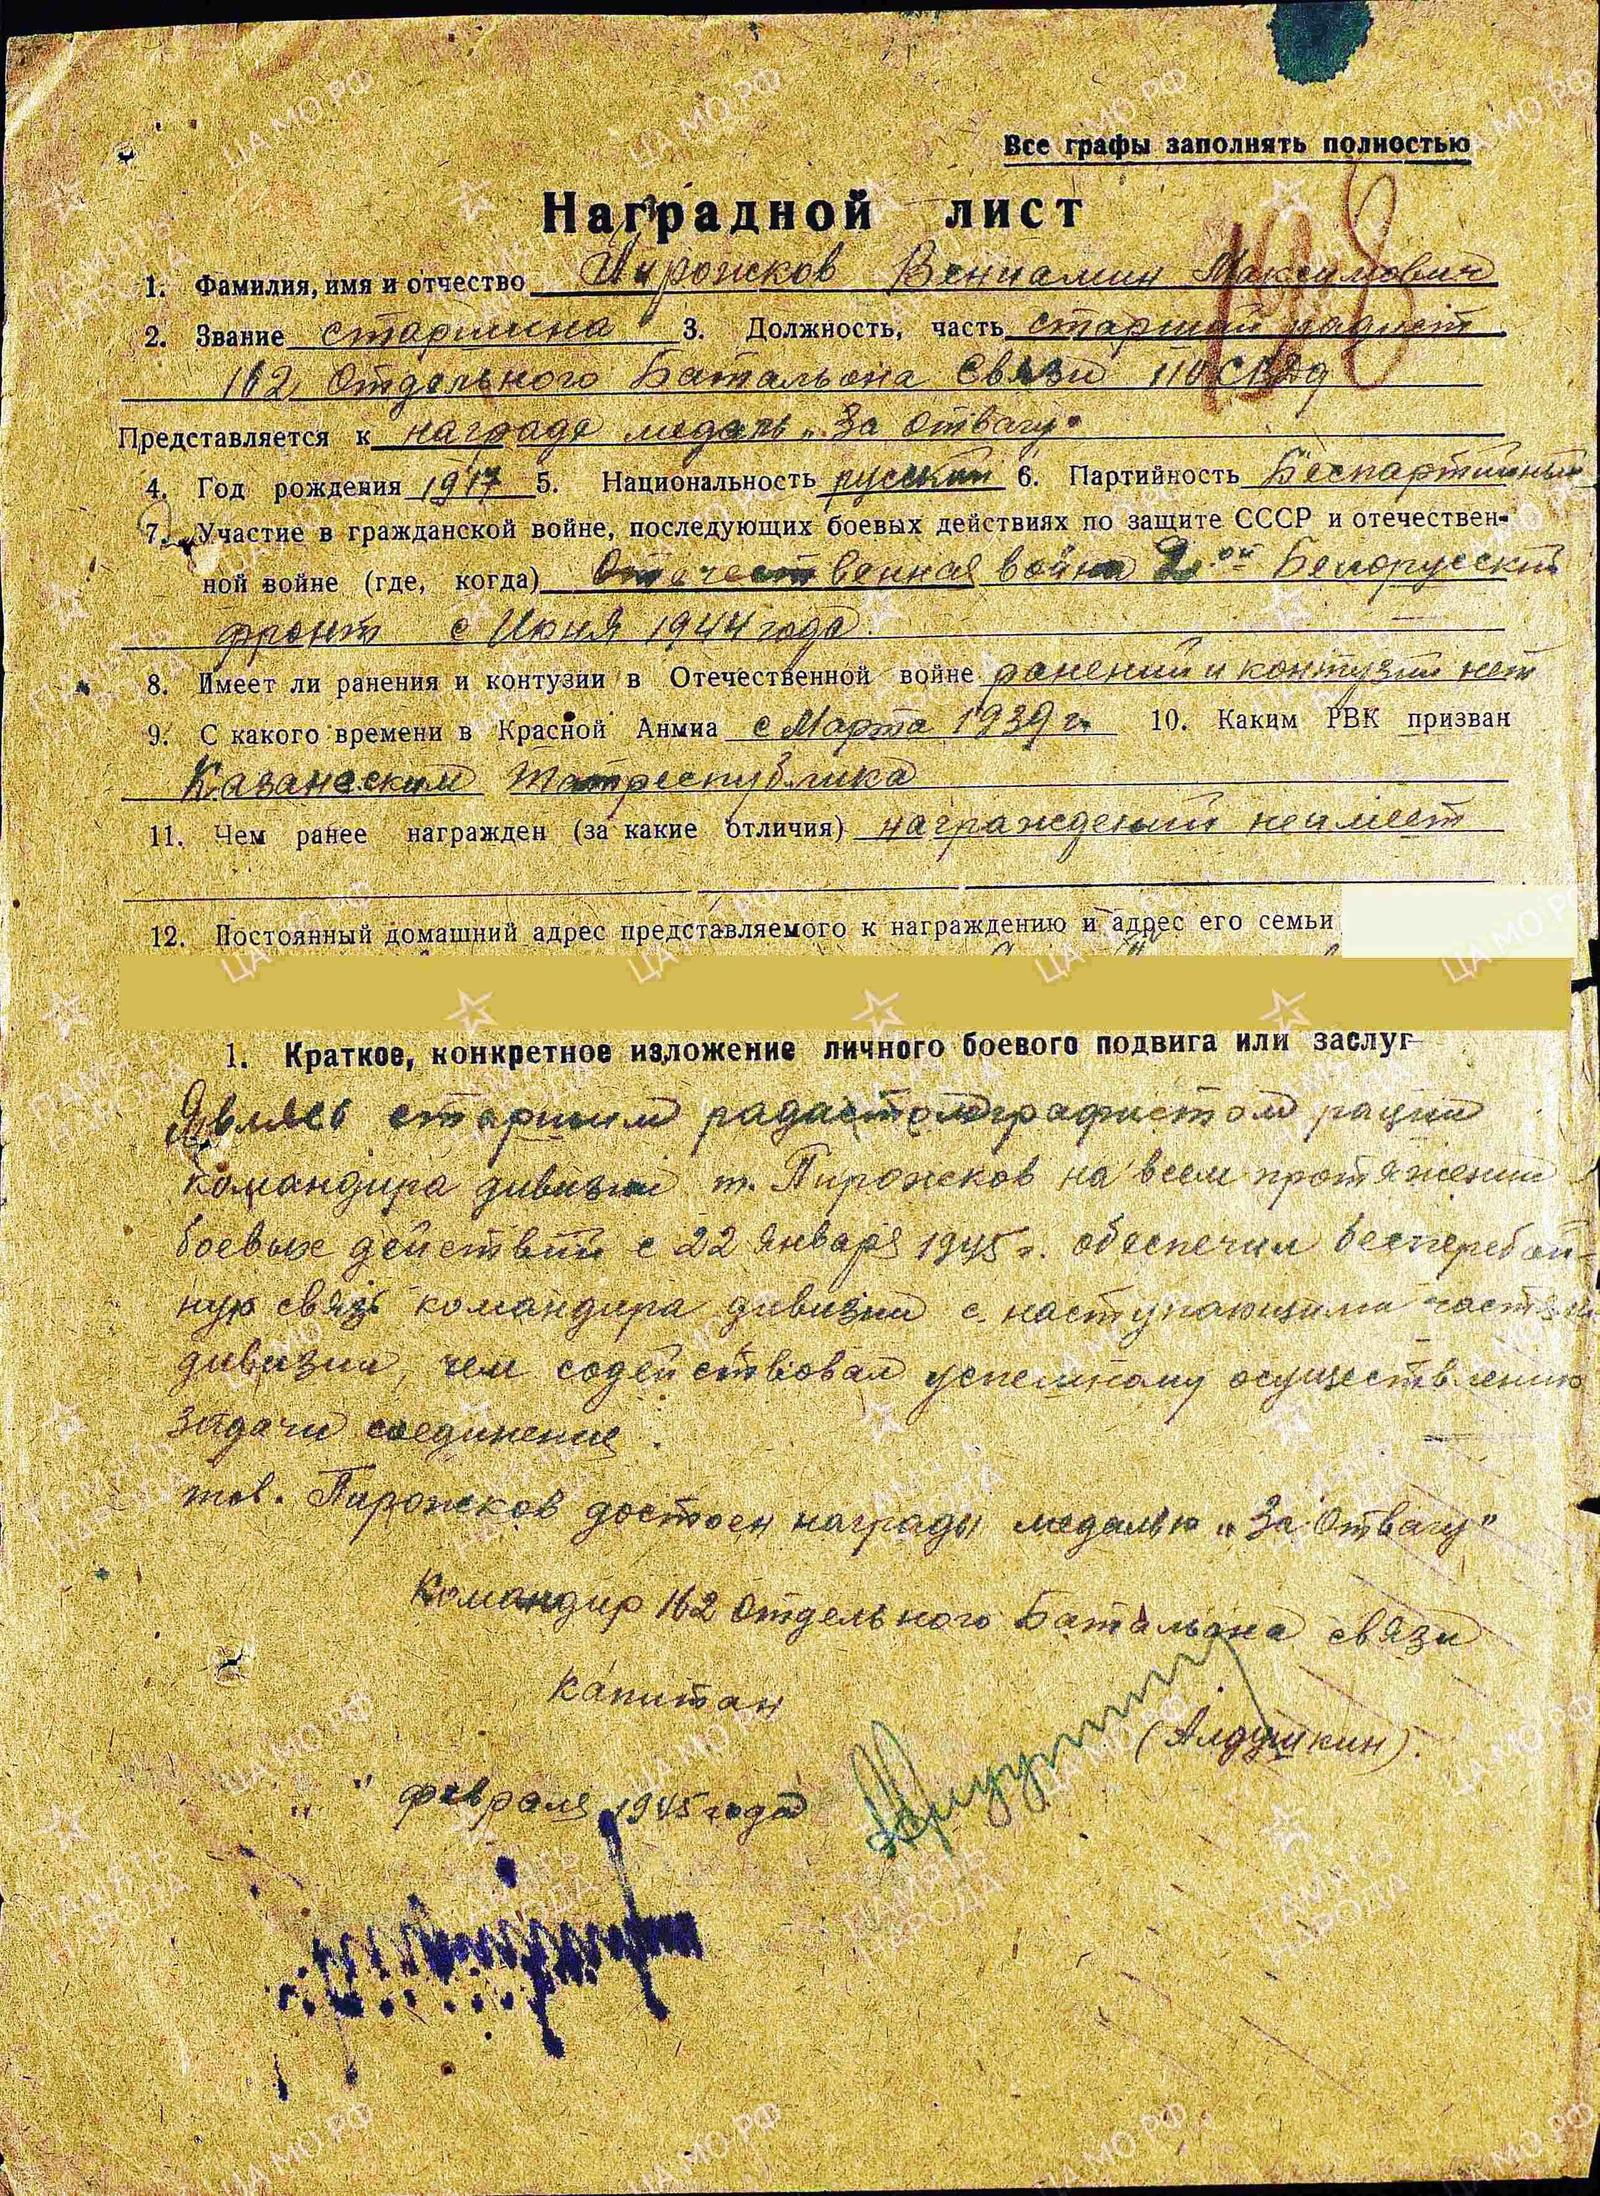 Все графы заполнять полностью
198
Наградной лист
1. Фамилия, имя и отчество Пирожков Вениамин Максимович
2. Звание старшина 3. Должность, часть старший радист
162 Отдельного Батальона Связи 110 СКДд
Представляется к награде медаль „За Отвагу"
4. Год рождения 1917 5. Национальность русский 6. Партийность Беспартийный
7. Участие в гражданской войне, последующих боевых действиях по защите СССР и отечествен-
ной войне (где, когда) Отечественная война 2ой Белорусский
фронт с Июня 1944 года.
8. Имеет ли ранения и контузии в Отечественной войне ранений и контузий нет
9. С какого времени в Красной Анмиа с Марта 1939 г. 10. Каким РВК призван
Казанским Татреспублика
11. Чем ранее награжден (за какие отличия) награждений неимеет
12. Постоянный домашний адрес представляемого к награждению и адрес его семьи
1. Краткое, конкретное изложение личного боевого подвига или заслуг
Являясь старшим рации
командира дивизии т. Пирожков на всем протяжении
боевых действий с 22 Января 1945 г. обеспечил бесперебой-
ную связь командира дивизии с наступающими частями
дивизии, чем содействовал успешному осуществлению
задачи соединения.
тов. Пирожков достоен награды медалью „За Отвагу"
Командир 162 Отдельного Батальона связи
капитан
(Алдушкин).
„ " февраля 1945 года